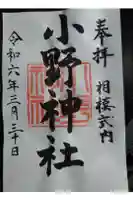 奉拝 相模式内
小野神社
令和六年三月三十日